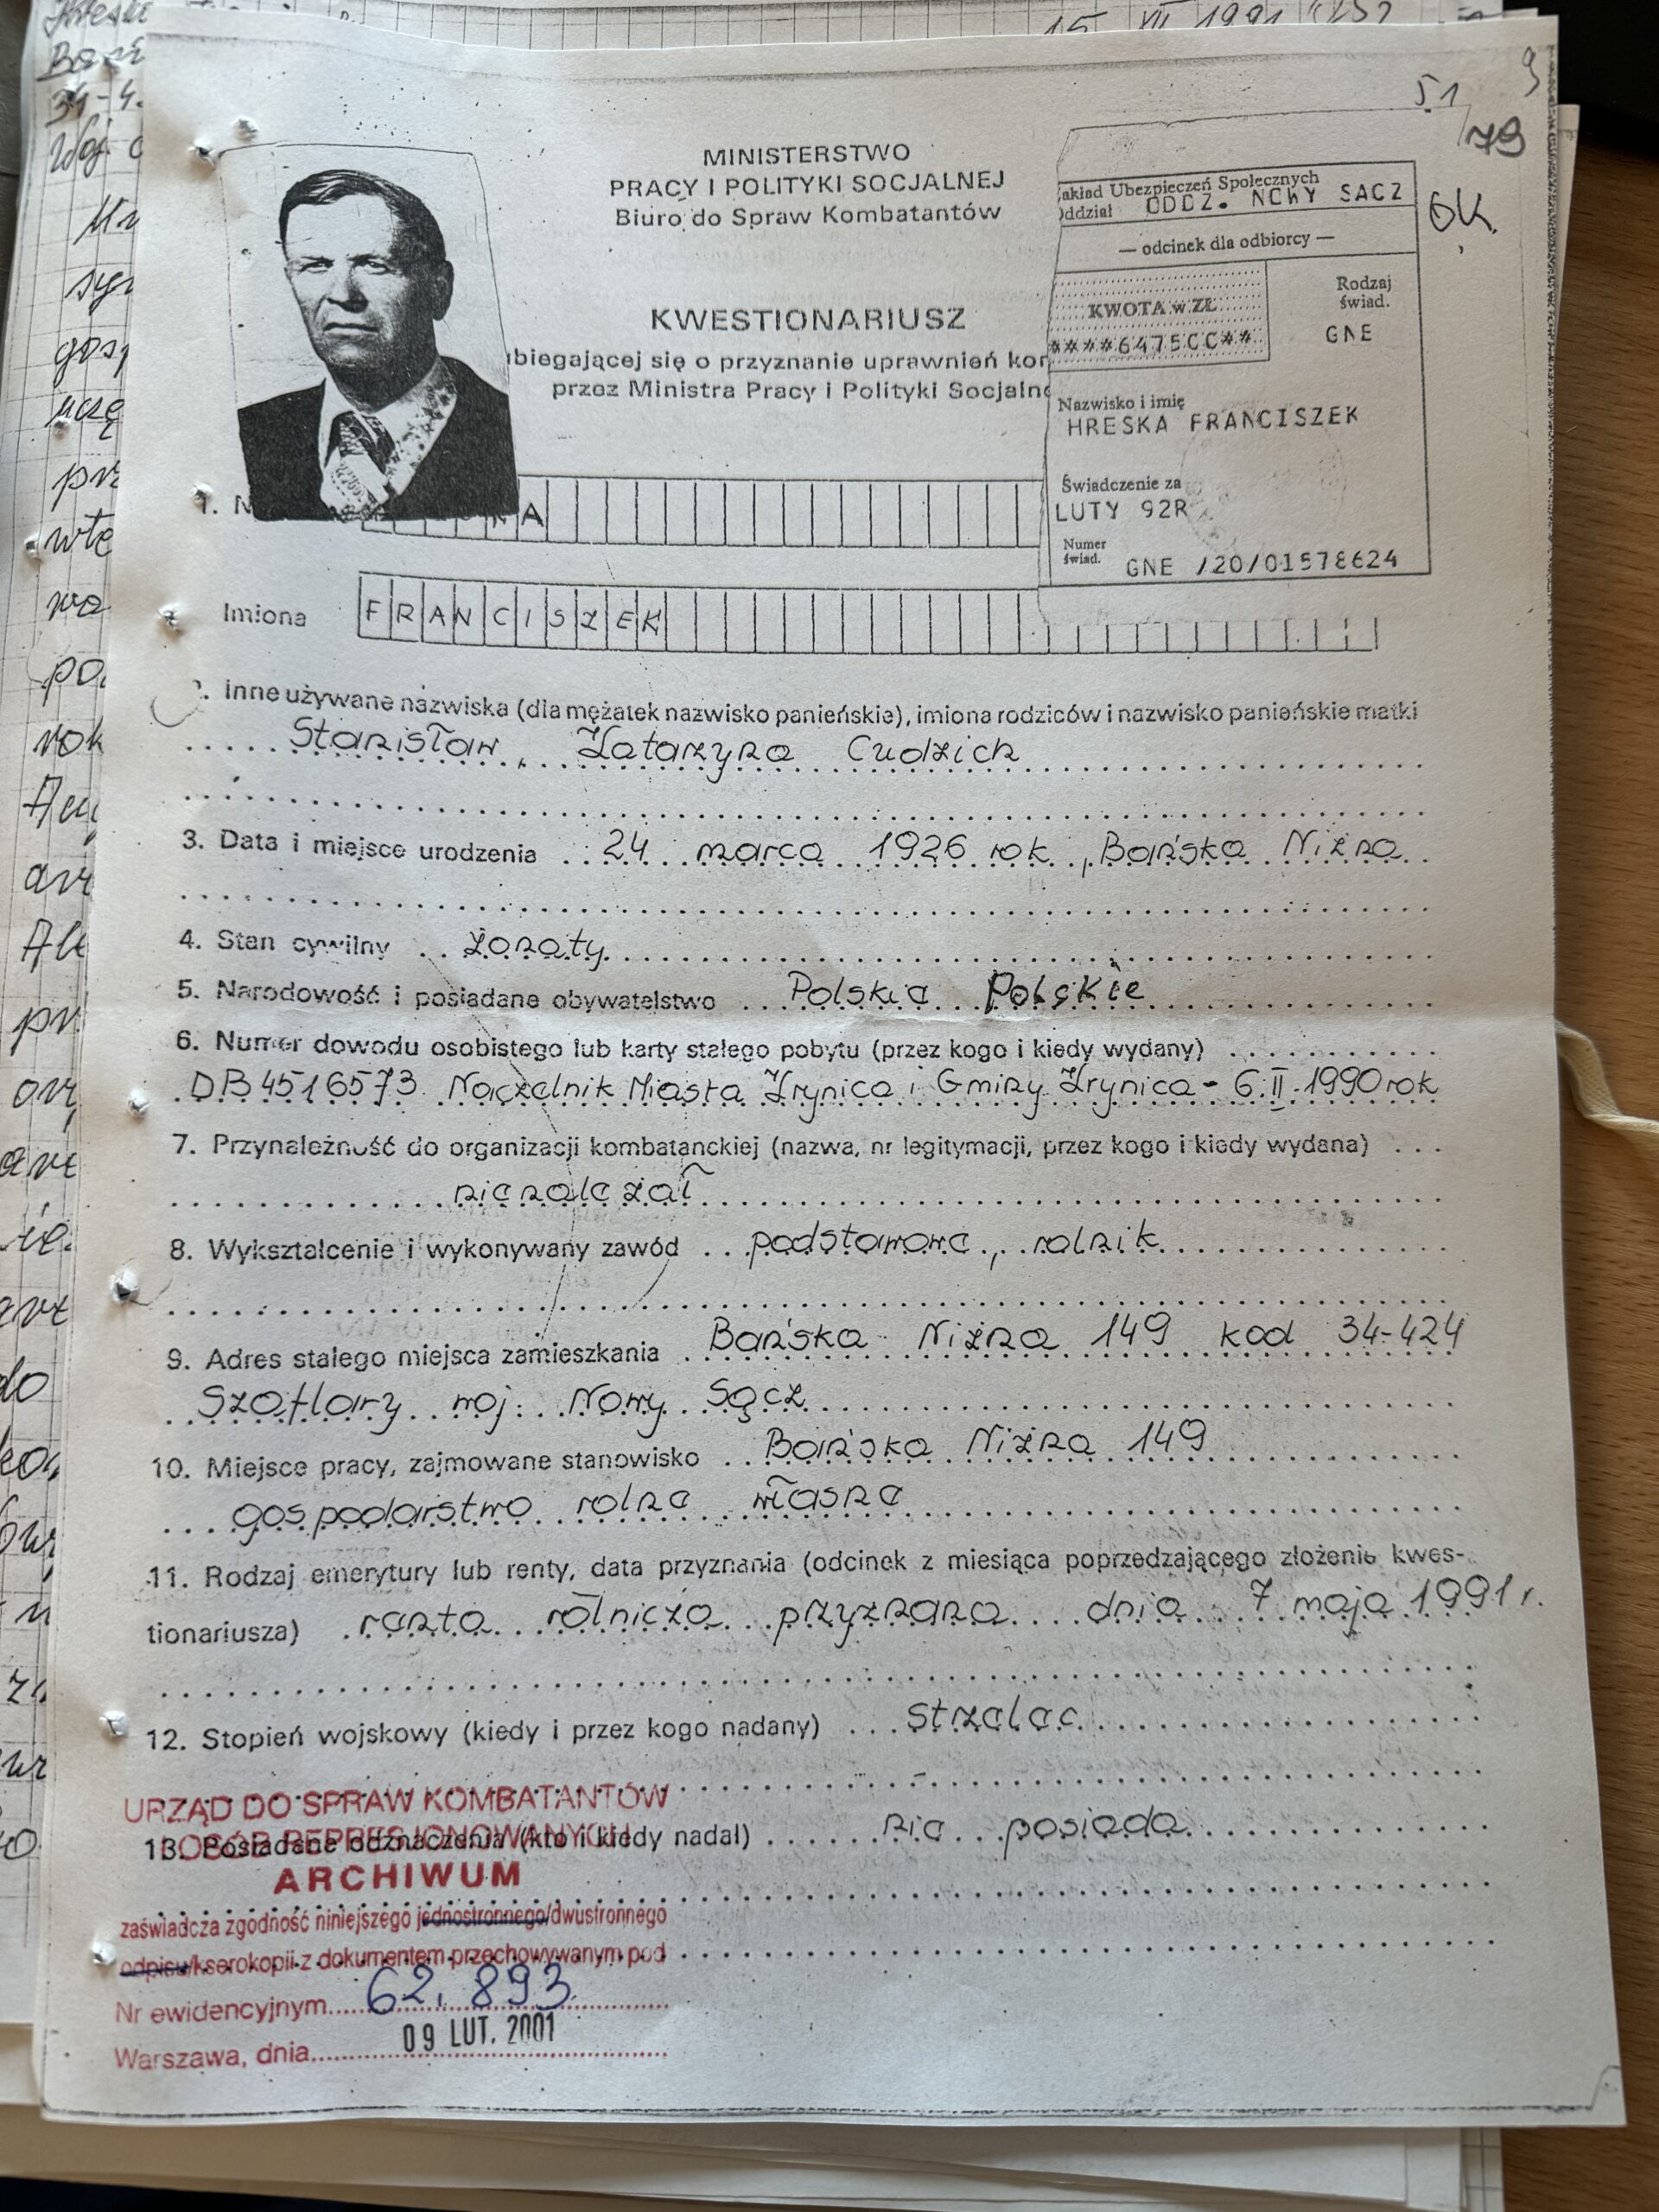 15 VII 1991
51
79
OK
MINISTERSTWO
PRACY I POLITYKI SOCJALNEJ
Biuro do Spraw Kombatantów
akład Ubezpieczeń Społecznych
ddział ODDZ. NOWY SACZ
— odcinek dla odbiorcy —
KWOTA w ZŁ
Rodzaj świad.
****647500**
GNE
Nazwisko i imię
HRESKA FRANCISZEK
Świadczenie za
LUTY 92R
Numer świad. GNE /20/01578624
KWESTIONARIUSZ
biegającej się o przyznanie uprawnień kor
przez Ministra Pracy i Polityki Socjaln
1. N KA
Imiona FRANCISZEK
2. Inne używane nazwiska (dla mężatek nazwisko panieńskie), imiona rodziców i nazwisko panieńskie matki
Stanisław, Katarzyna Cudzich
3. Data i miejsce urodzenia 24 marca 1926 rok, Bańska Niżna
4. Stan cywilny żonaty
5. Narodowość i posiadane obywatelstwo Polska Polskie
6. Numer dowodu osobistego lub karty stałego pobytu (przez kogo i kiedy wydany)
DB4516573 Naczelnik Miasta Krynica i Gminy Krynica - 6.II.1990 rok
7. Przynależność do organizacji kombatanckiej (nazwa, nr legitymacji, przez kogo i kiedy wydana)
nie należał
8. Wykształcenie i wykonywany zawód podstawowe, rolnik
9. Adres stałego miejsca zamieszkania Bańska Niżna 149 kod 34-424
Szaflary woj. Nowy Sącz
10. Miejsce pracy, zajmowane stanowisko Bańska Niżna 149
gospodarstwo rolne własne
11. Rodzaj emerytury lub renty, data przyznania (odcinek z miesiąca poprzedzającego złożenie kwes-
tionariusza) renta rolnicza przyznana dnia 7 maja 1991 r.
12. Stopień wojskowy (kiedy i przez kogo nadany) strzelec
13. Posiadane odznaczenia (kto i kiedy nadał) nie posiada
URZĄD DO SPRAW KOMBATANTÓW
I OSÓB REPRESJONOWANYCH
ARCHIWUM
zaświadcza zgodność niniejszego jednostronnego/dwustronnego
odpisu/kserokopii z dokumentem przechowywanym pod
Nr ewidencyjnym 62.893
Warszawa, dnia 09 LUT. 2001